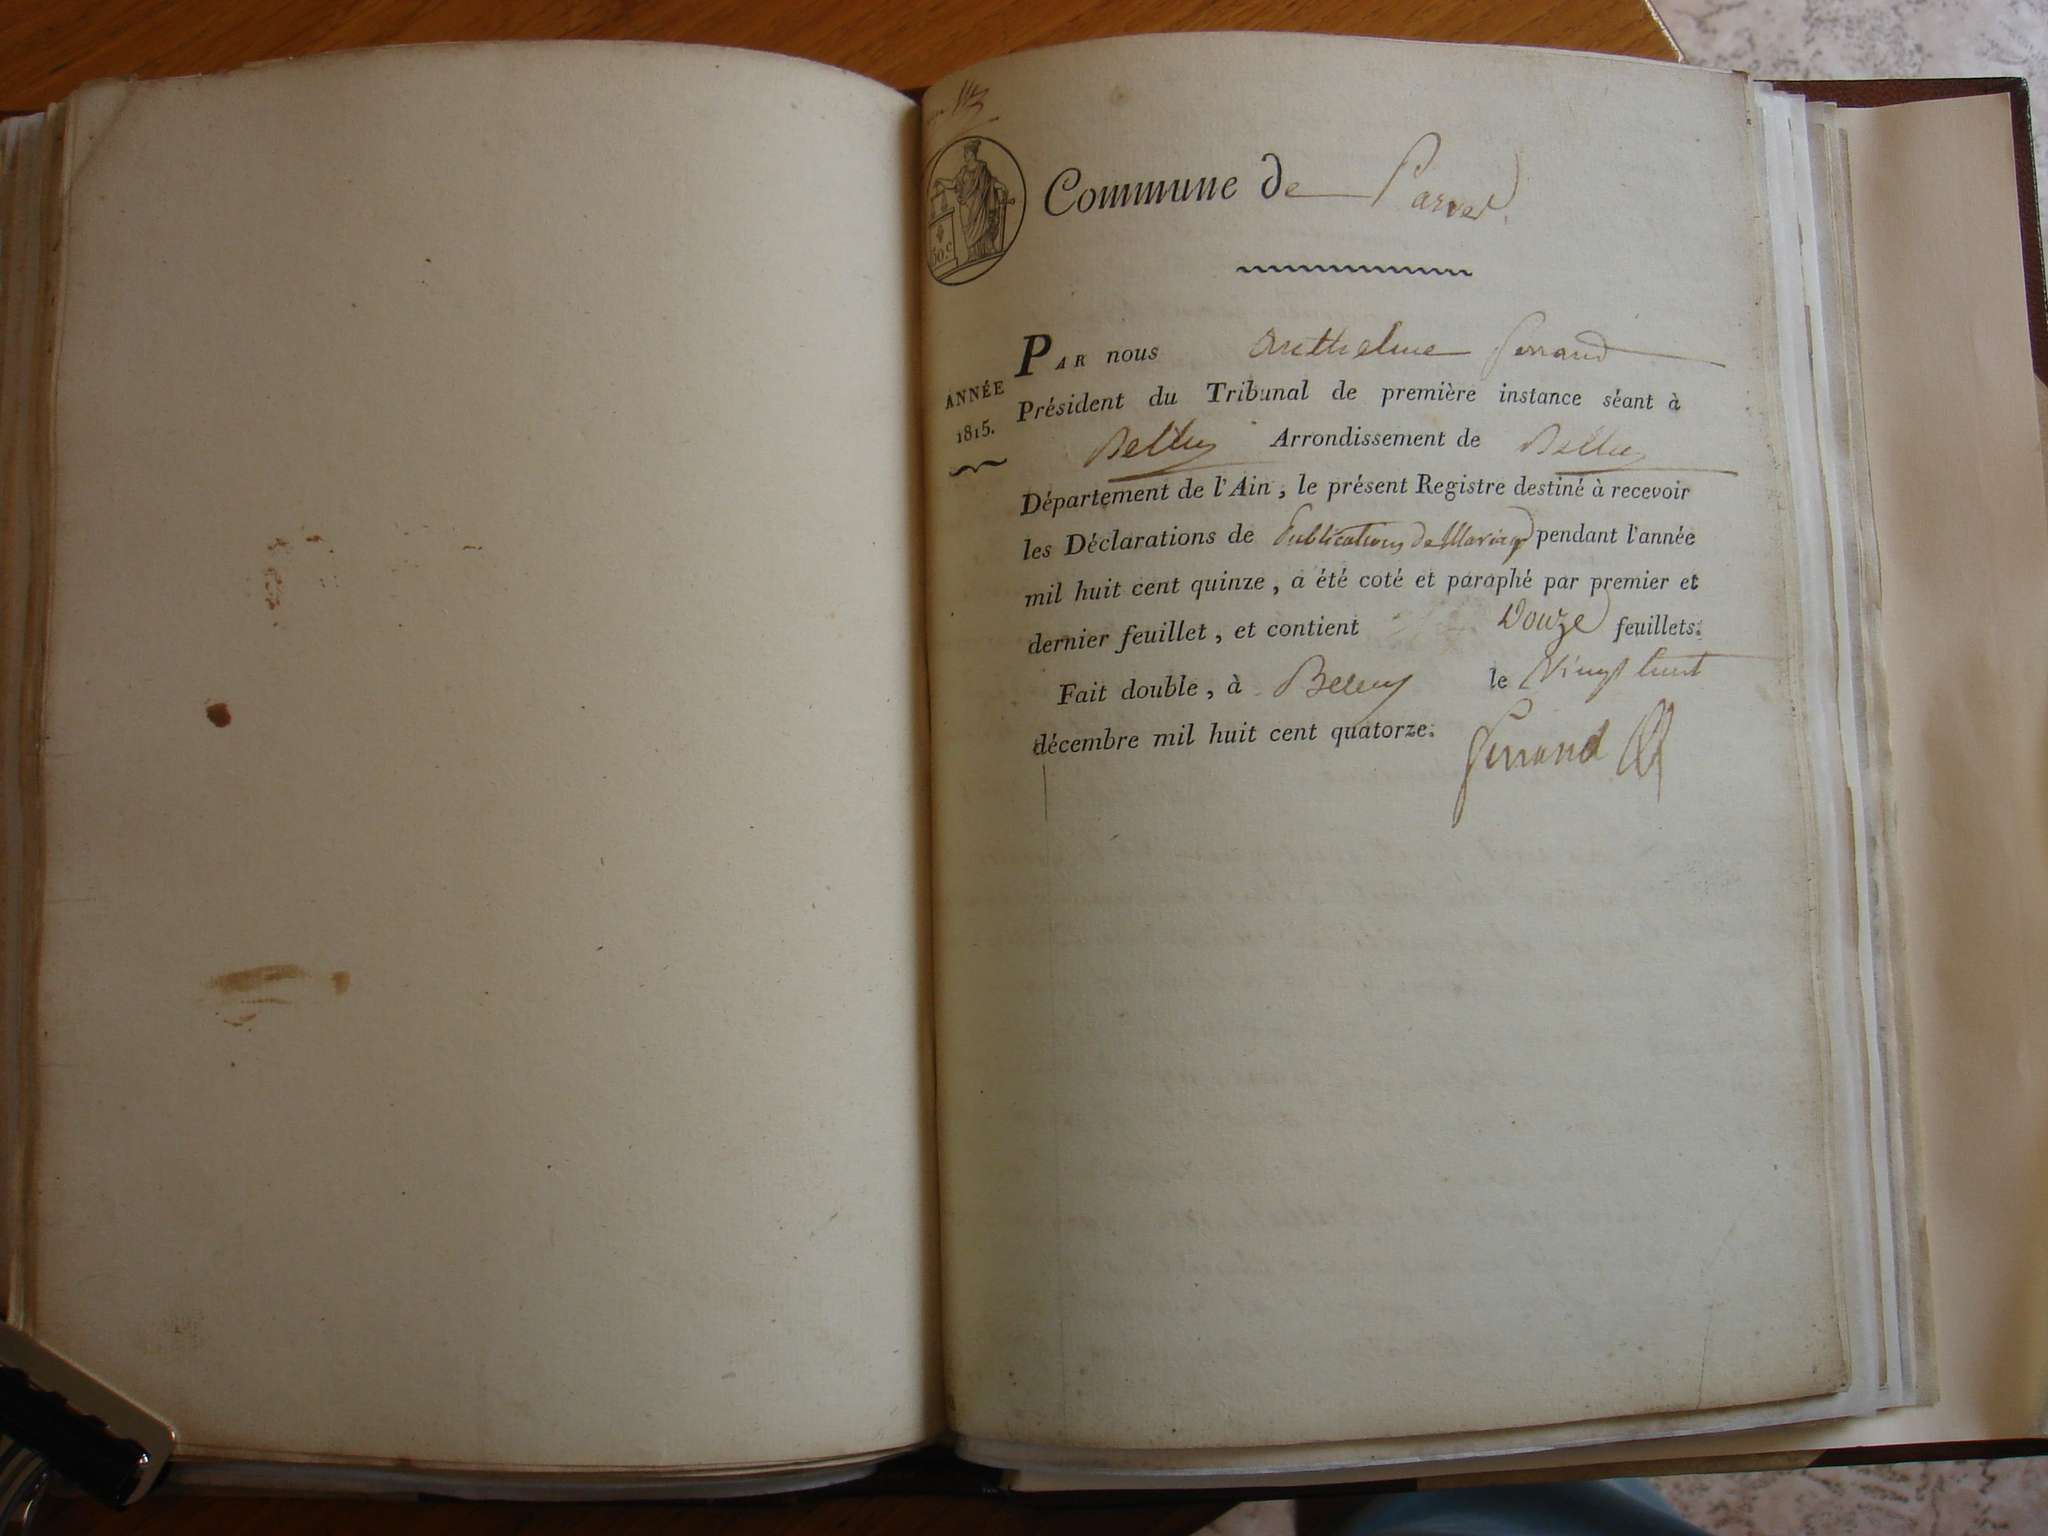 50 c
Commune de Parves
PAR nous Anthelme Ferrand
ANNÉE
1815.
Président du Tribunal de première instance séant à
Belley Arrondissement de Belley
Département de l'Ain, le présent Registre destiné à recevoir
les Déclarations de Publications de Mariage pendant l'année
mil huit cent quinze, a été coté et paraphé par premier et
dernier feuillet, et contient Douze feuillets.
Fait double, à Belley le Vingt huit
décembre mil huit cent quatorze.
Ferrand